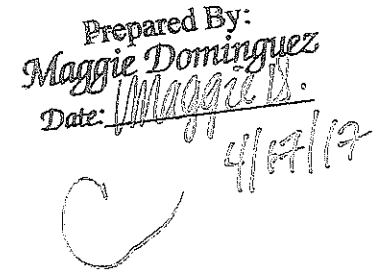 Prepared By:
Maggie Dominguez
Date: Maggie D.
4/17/17